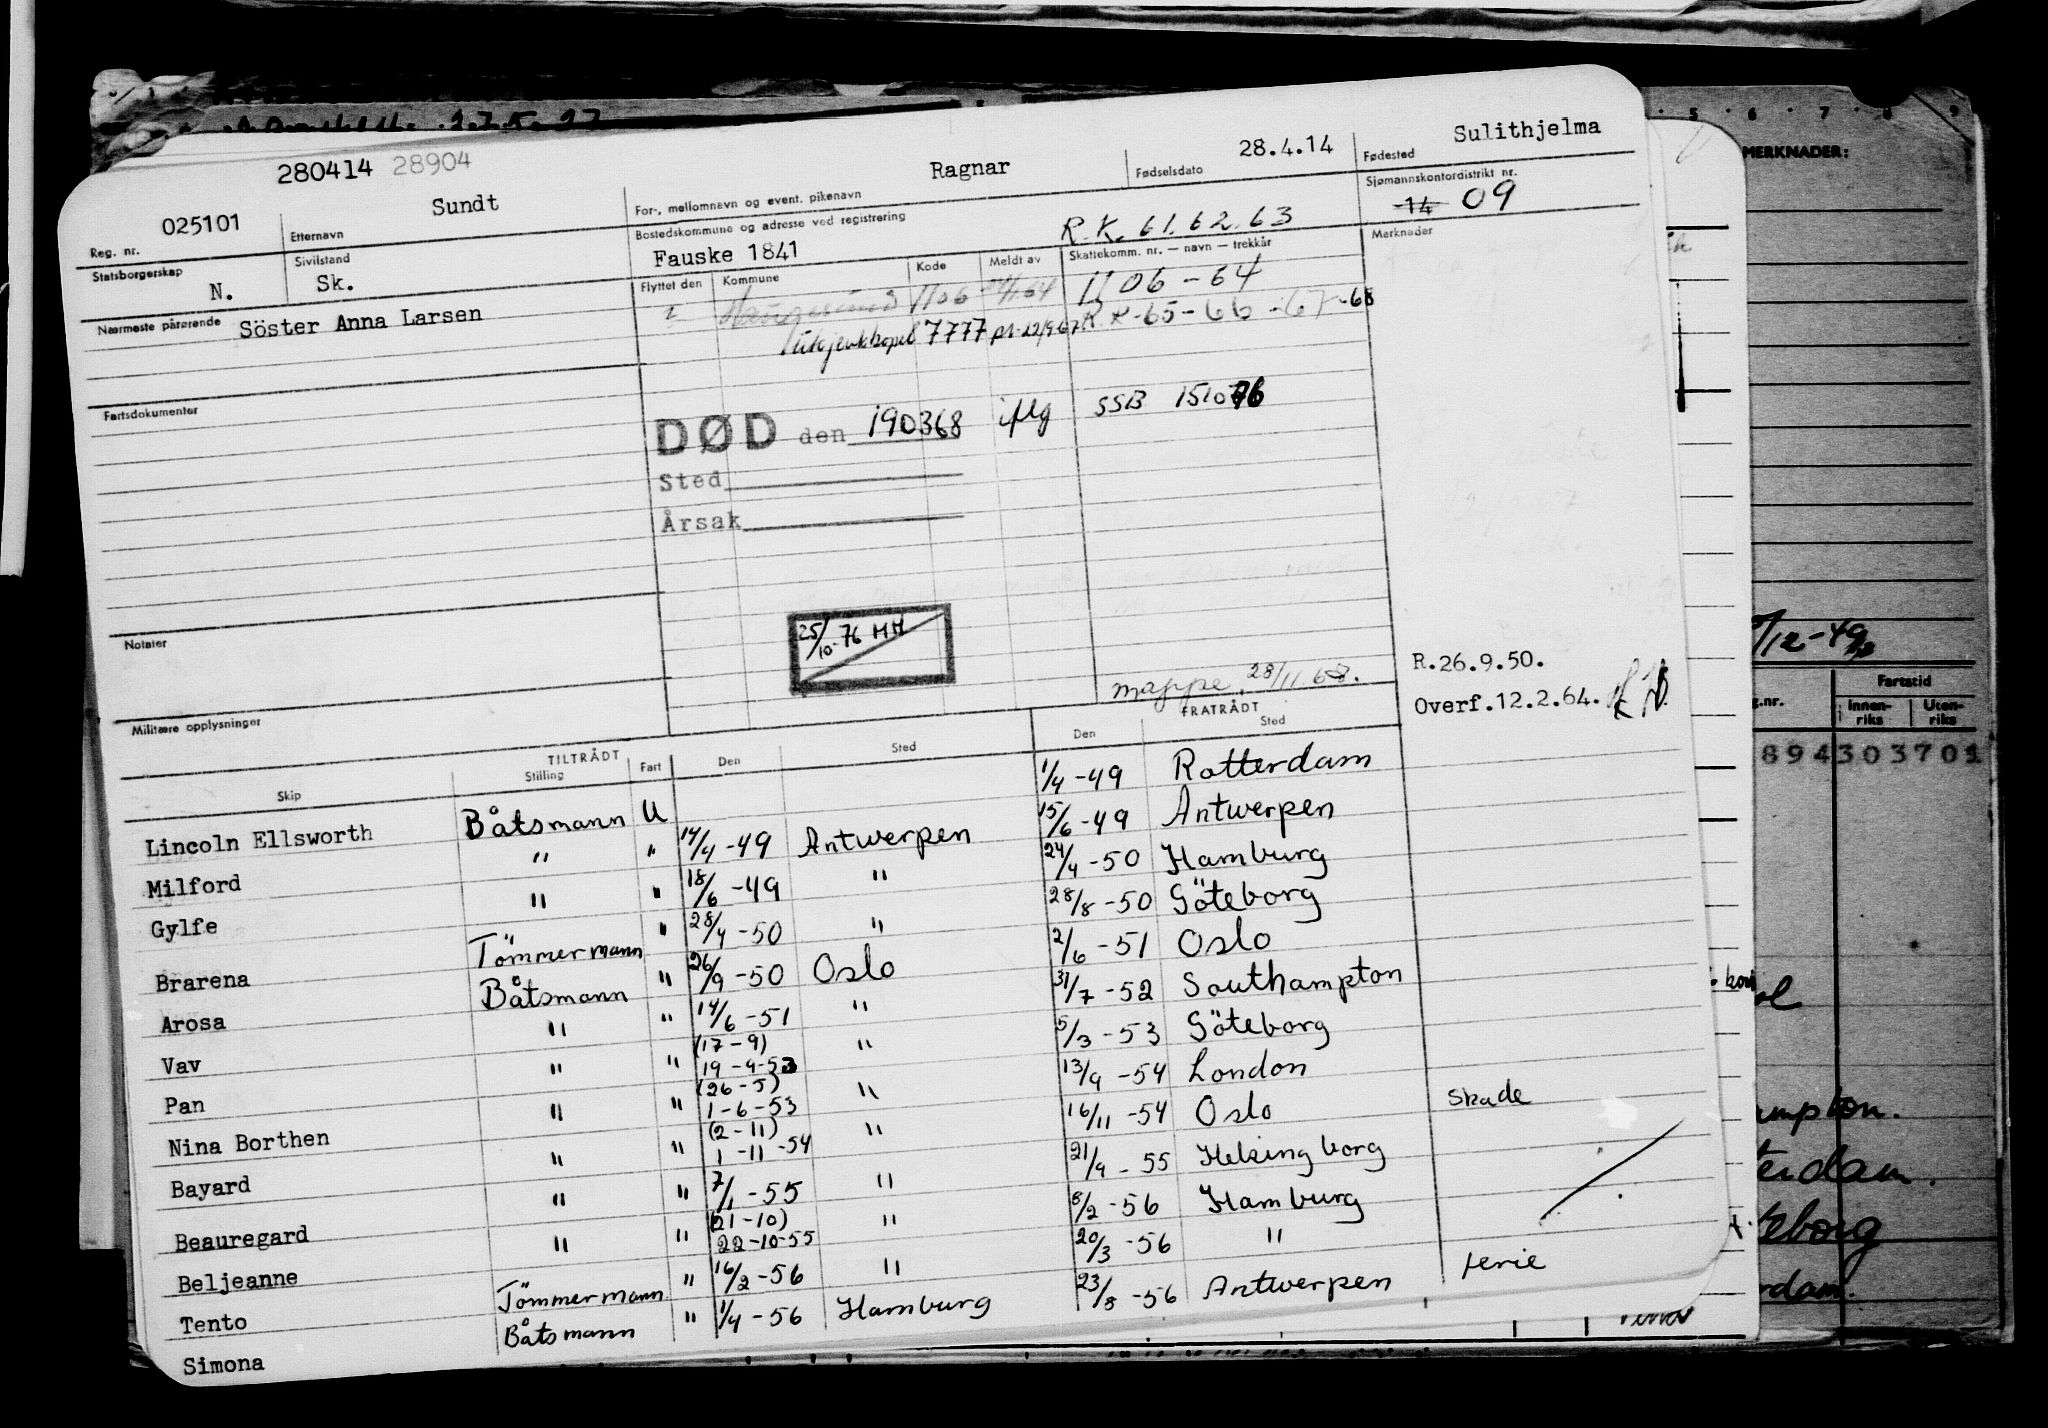 280414 28904
025101 Sundt Ragnar 28.4.14 Sulithjelma
Reg. nr. Etternavn For-, mellomnavn og event. pikenavn Fødselsdato Fødested
Statsborgerskap Sivilstand Bostedskommune og adresse ved registrering Sjømannskontordistrikt nr.
N. Sk. Fauske 1841 R.K. 61.62.63 14 09
Nærmeste pårørende Flyttet den Kommune Kode Meldt av Skattekomm. nr. — navn — trekkår Merknader
Söster Anna Larsen 1106 1106 - 64
7777 R K -65-66-67-68
Fartsdokumenter
DØD den 190368 iflg SSB 151076
Sted
Årsak
25/10-76 HH
Notater
mappe 28/11.68.
R.26.9.50.
Overf.12.2.64.
Militære opplysninger
TILTRÅDT FRATRÅDT
Skip Stilling Fart Den Sted Den Sted
Lincoln Ellsworth Båtsmann U 1/4 -49 Rotterdam
Milford " " 14/4 -49 Antwerpen 15/6 -49 Antwerpen
Gylfe " " 18/6 -49 " 24/4 -50 Hamburg
Brarena Tömmermann " 28/4 -50 " 28/8 -50 Göteborg
Arosa Båtsmann " 26/9 -50 Oslo 2/6 -51 Oslo
Vav " " 14/6 -51 " 31/7 -52 Southampton
Pan " " (17-9) 19-9-52 " 5/3 -53 Göteborg
Nina Borthen " " (26-5) 1-6-53 " 13/9 -54 London
Bayard " " (2-11) 1-11-54 " 16/11 -54 Oslo skade
Beauregard " " 7/1 -55 " 21/9 -55 Helsingborg
Beljeanne " " (21-10) 22-10-55 " 8/2 -56 Hamburg
Tento Tömmermann " 16/2 -56 " 20/3 -56 "
Simona Båtsmann " 1/4 -56 Hamburg 23/8 -56 Antwerpen ferie
5 6 7 8 9
MERKNADER:
/12-49
Fartstid
g.nr. Innenriks Utenriks
894303701